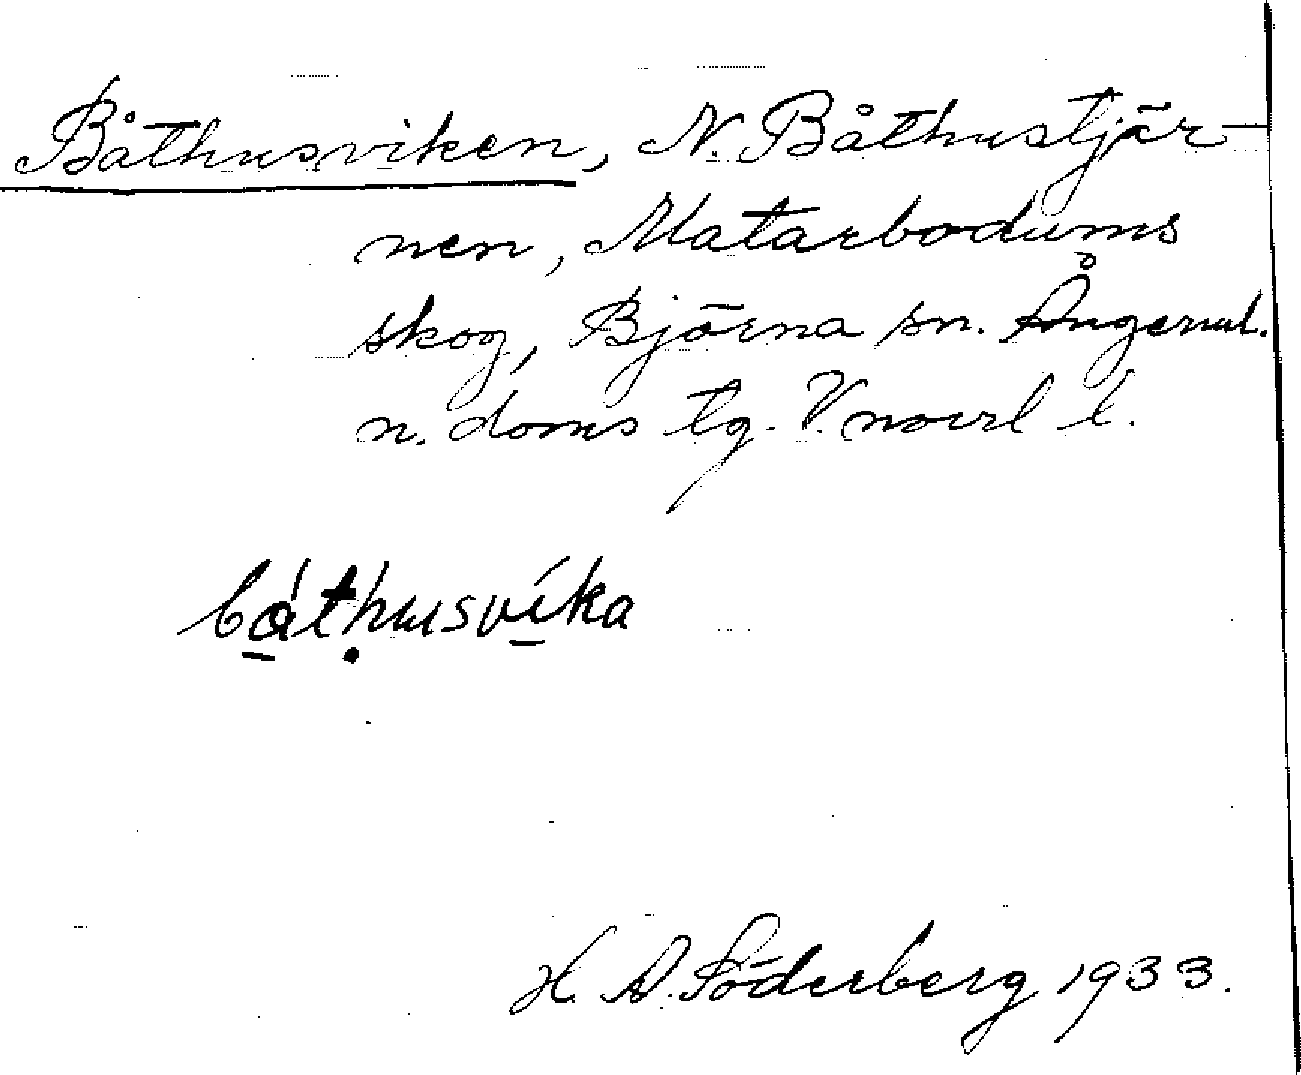 Båthusviken, N. Båthustjär-
nen, Matarbodums
skog, Björna sn. Ångerml.
n. doms tg. V. norrl l.
båthusvíka
H. A. Söderberg 1933.